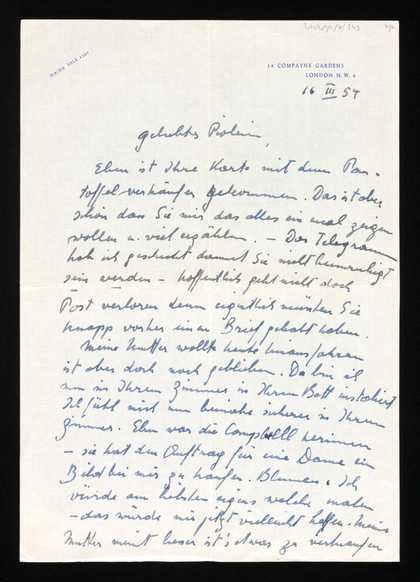 14 COMPAYNE GARDENS
LONDON N.W. 6
16 III 54
geliebtes
Eben ist Ihre Karte mit dem Pan-
toffelverkäufer gekommen. Das ist aber
schön dass Sie mir das alles einmal zeigen
wollen u. viel erzählen. – Das Telegramm
hab ich geschickt damit Sie nicht beunruhigt
sein werden – hoffentlich geht nicht doch
Post verloren denn eigentlich müssten Sie
knapp vorher einen Brief gehabt haben.
Meine Mutter wollte heute hinausfahren
ist aber doch noch geblieben. Da bin ich
nun in Ihrem Zimmer in Ihrem Bett installiert
Ich fühl mich nun beinahe sicherer in Ihrem
Zimmer. Eben war die Campbell herinnen
– sie hat den Auftrag für eine Dame ein
Bild bei mir zu kaufen. Blumen. Ich
würde am liebsten eigens welche malen
– das würde mir jetzt vielleicht helfen. Meine
Mutter meint besser ist's etwas zu verkaufen